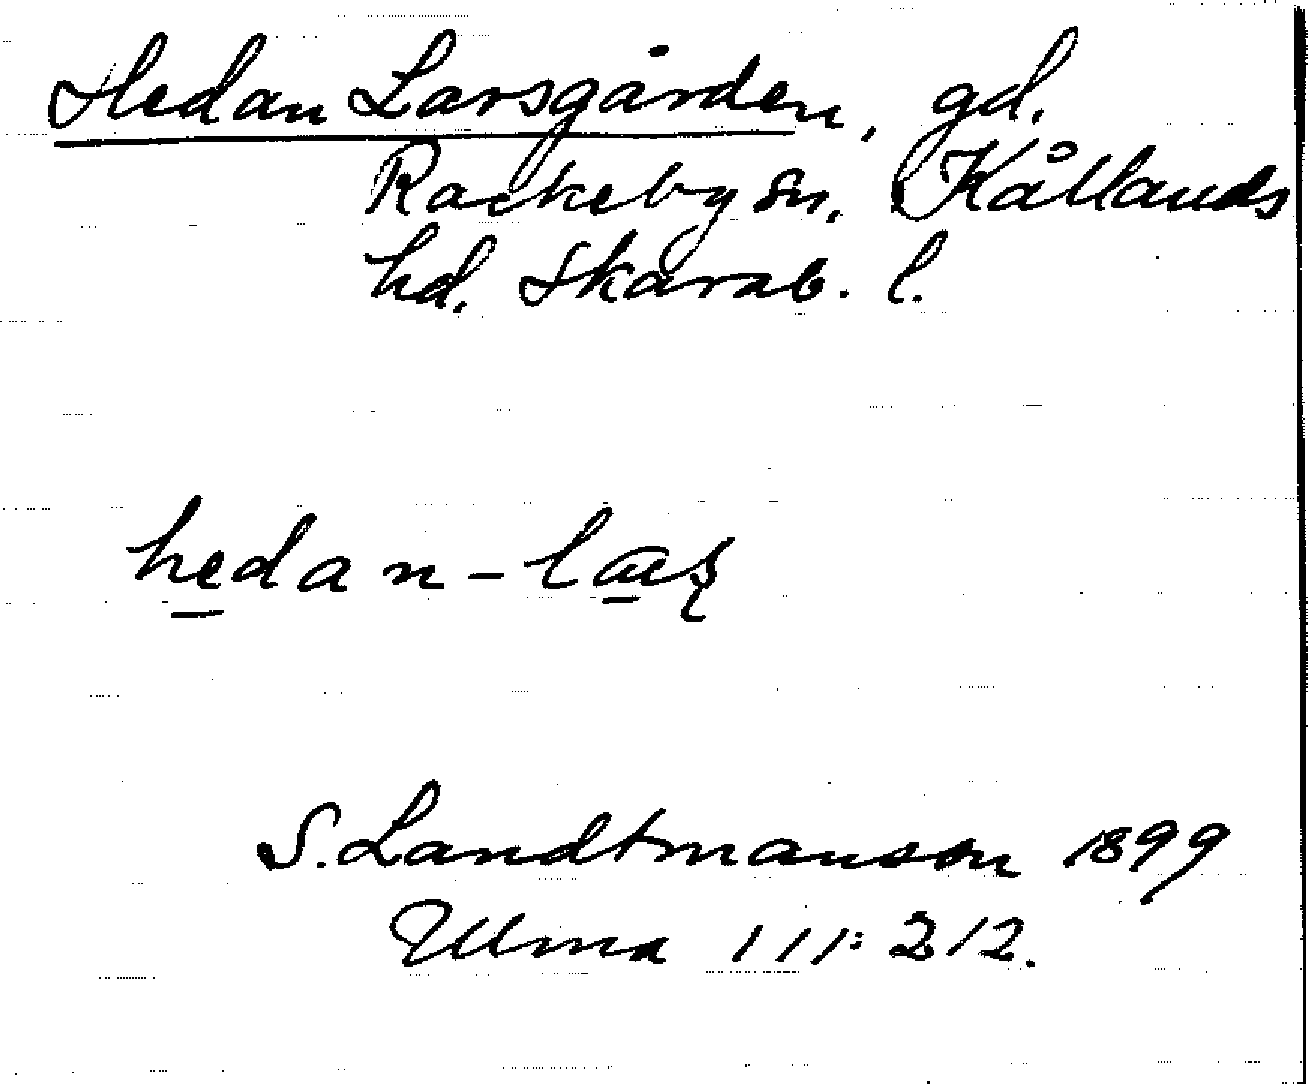 Hedan Larsgården, gd.
Rackeby sn, Kållands
hd. Skarab. l.
hedan-
S. Landtmanson 1899
Ulma 111:212.